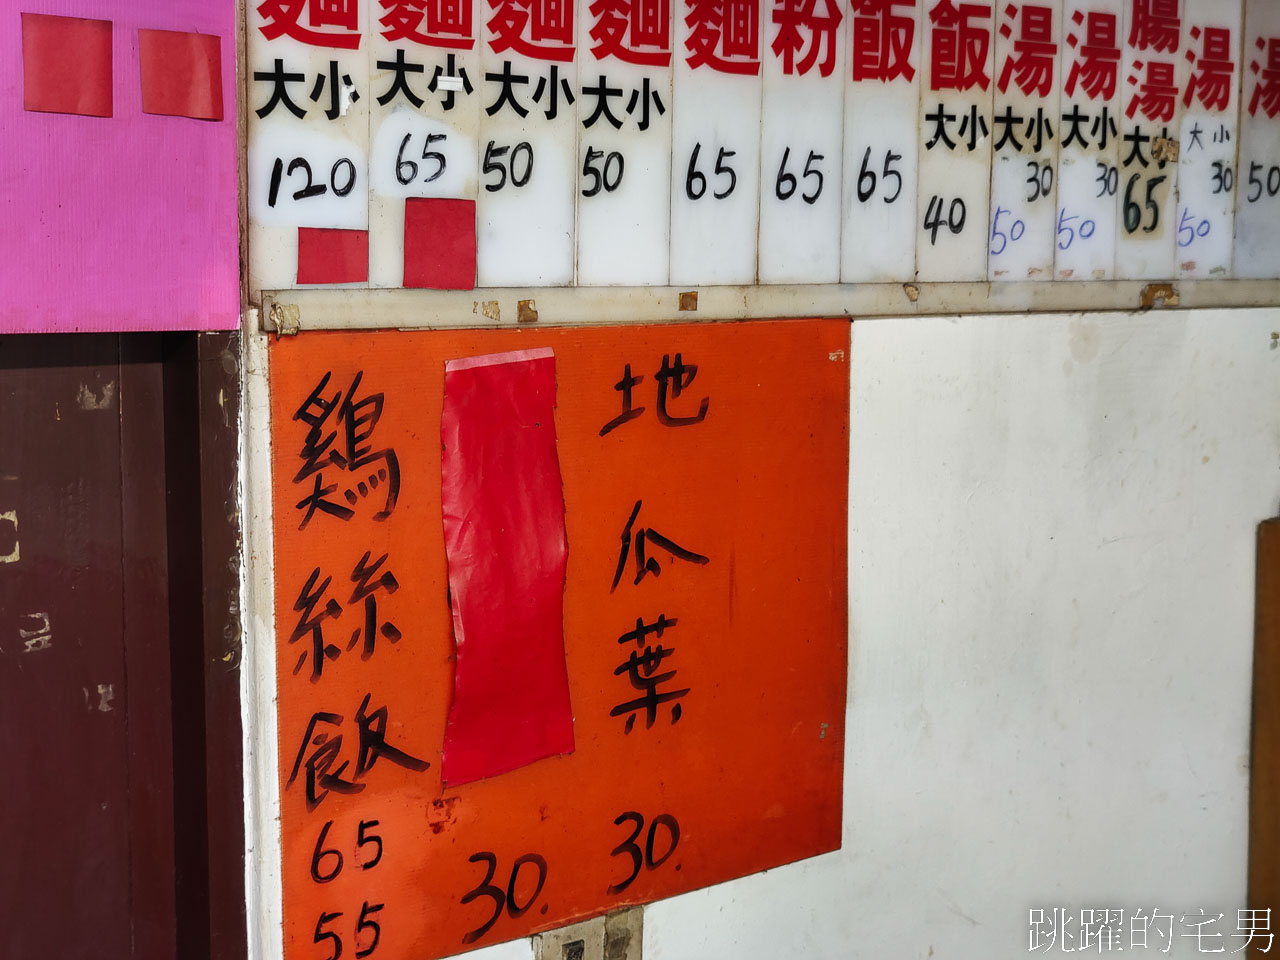 麵 大小 120
麵 大小 65
麵 大小 50
麵 大小 50
麵 65
粉 65
飯 65
飯 大小 40
湯 大小 30 50
湯 大小 30 50
腸湯 大小 65
湯 大小 30 50
湯 50
鷄絲飯 65 55
30.
地瓜葉 30.
跳躍的宅男